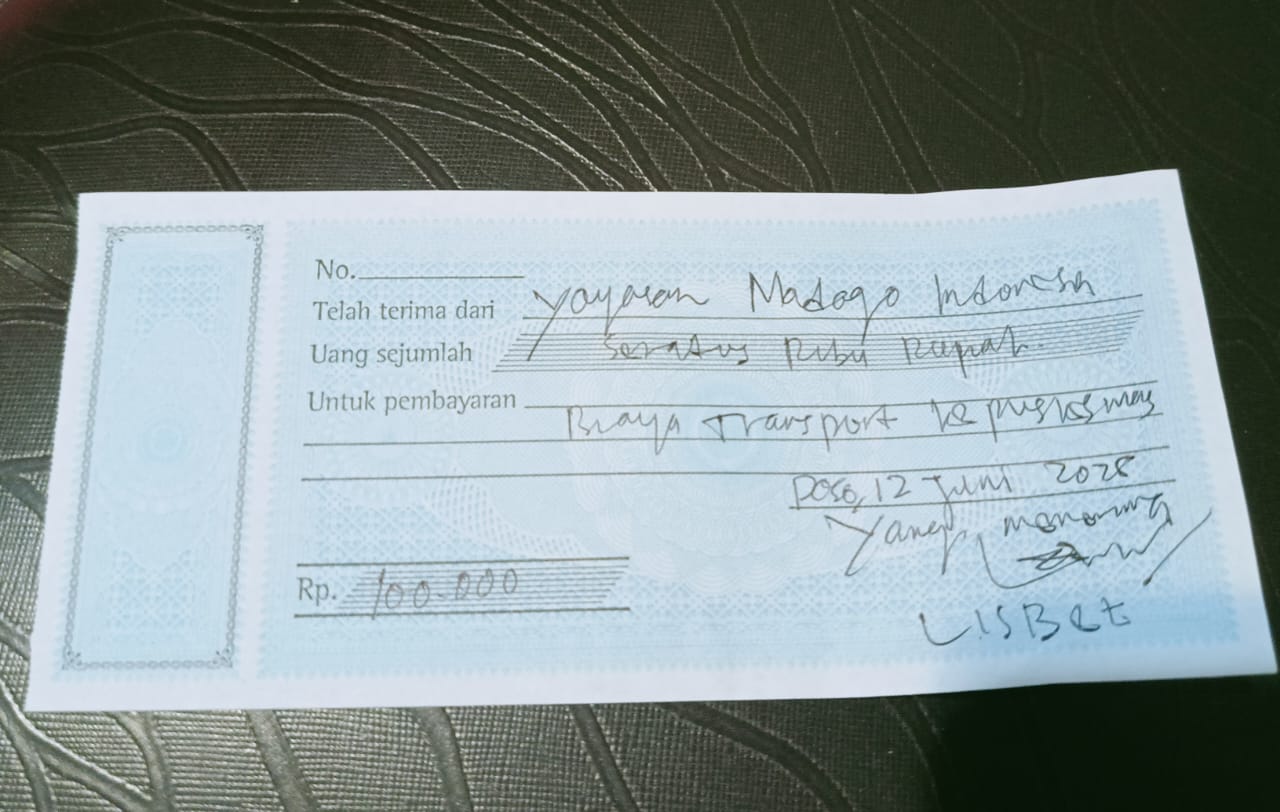 No.
Telah terima dari Yayasan Madago Indonesia
Uang sejumlah Seratus Ribu Rupiah.
Untuk pembayaran
Biaya Transport ke puskesmas
Poso, 12 Juni 2025
Yang menerima
Rp. 100.000
LISBet